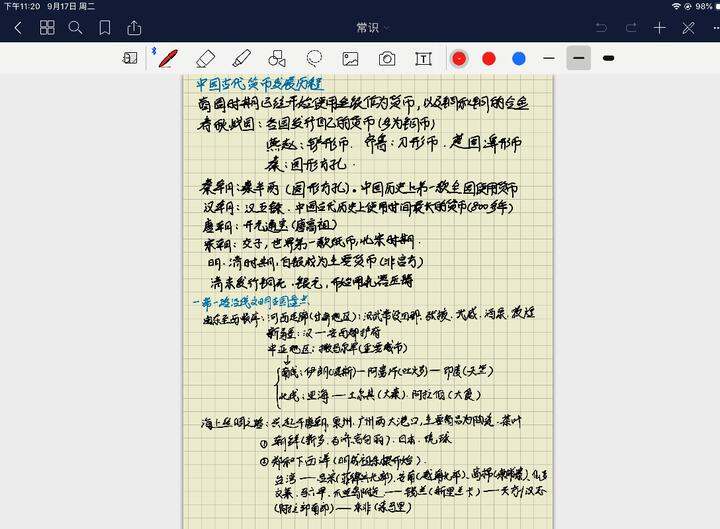 下午11:20 9月17日 周二
98%
常识
中国古代货币发展历程
商周时期已经开始使用金银作为货币，以及铜和铜的合金
春秋战国：各国发行自己的货币(多为铜币)
燕赵：铲形币. 齐鲁：刀形币. 楚国：
秦：圆形方孔.
秦朝：秦半两(圆形方孔). 中国历史上第一款全国使用货币
汉朝：汉五铢. 中国古代历史上使用时间最长的货币(800多年)
唐朝：开元通宝(唐高祖)
宋朝：交子，世界第一款纸币，北宋时期.
明.清时期，白银成为主要货币(非官方)
清末发行铜元.银元，开始用机器压铸
一带一路沿线文明古国重点
由东至西顺序：河西走廊(甘肃地区)：汉武帝设四郡，张掖.武威.酒泉.敦煌
新疆：汉一安西都护府
中亚地区：撒马尔罕(重要城市)
南线：伊朗(波斯)—阿富汗(吐火罗)—印度(天竺)
北线：里海—土耳其(大秦).阿拉伯(大食)
海上丝绸之路：兴起于唐朝，泉州.广州两大港口，主要商品为陶瓷.茶叶
① 朝鲜(新罗.百济.高句丽).日本.琉球
② 郑和下西洋(明成祖朱棣开始).
台湾——吕宋(菲律宾北部).安南(越南北部).
文莱.马六甲. ——锡兰(斯里兰卡)——天方/汉志
(阿拉部南部)——东非(索马里)